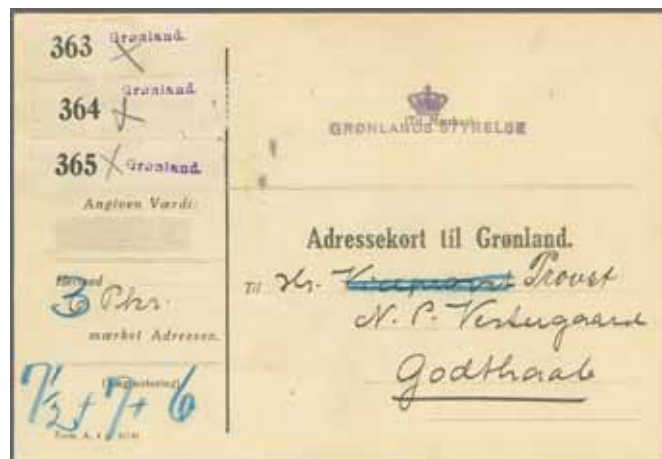 363 Grønland.
364 Grønland.
365 Grønland.
Angiven Værdi:
3 Pkr.
mærket Adressen.
7½ + 7 + 6
(Til Mærker)
GRØNLANDS STYRELSE
Adressekort til Grønland.
Til Hr. Provst
N. P. Vestergaard
Godthaab